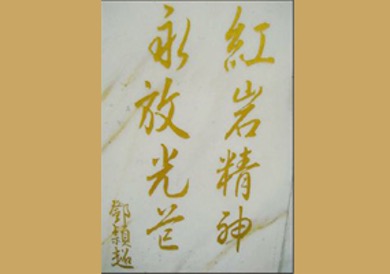 紅岩精神
永放光芒
鄧穎超